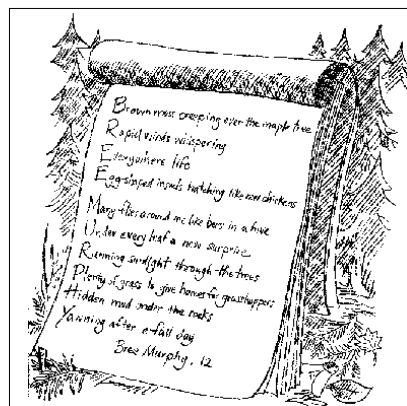 Brown moss creeping over the maple tree
Rapid winds whispering
Everywhere life
Egg-shaped insects hatching like new chickens
Many flies around me like bees in a hive
Under every leaf a new surprise
Running sunlight through the trees
Plenty of grass to give homes for grasshoppers
Hidden mud under the rocks
Yawning after a full day
Bree Murphy, 12